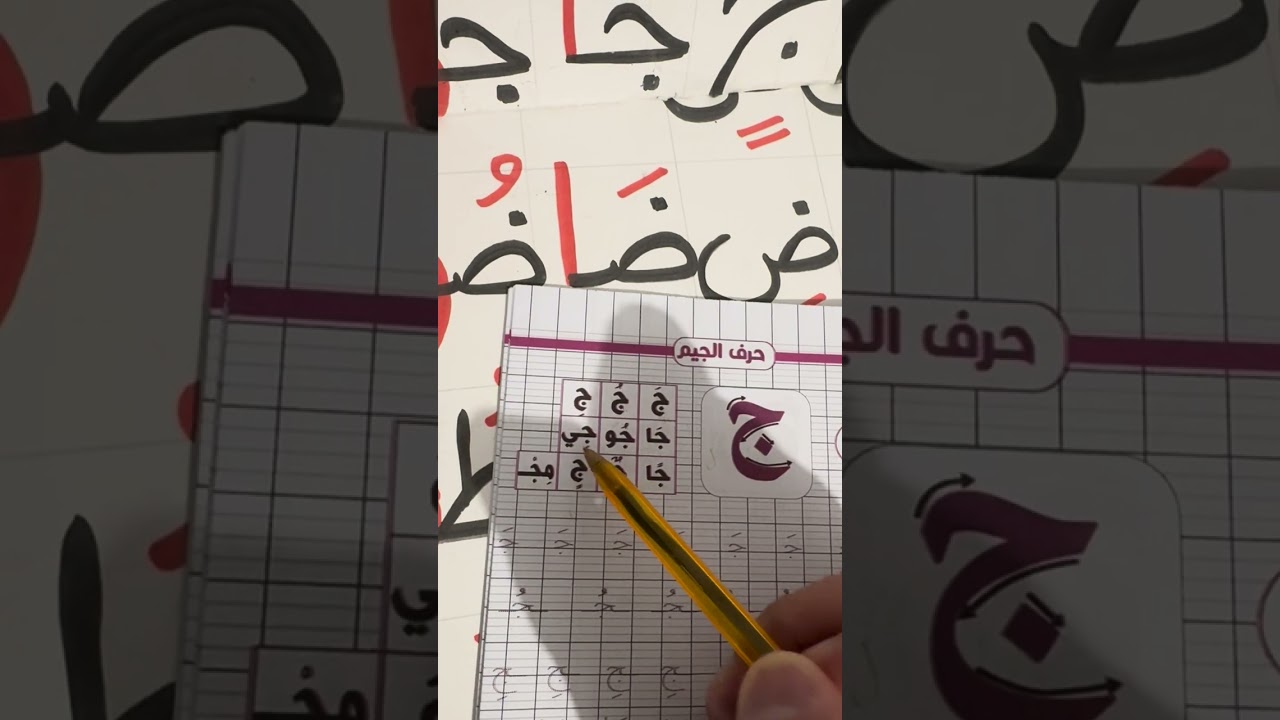 جا جـ
ضِ ضَا ضُـ
حرف الجيم
ج
جَ جُ جِ
جَا جُو جِي
جًا جٍ مِجْـ
جَ جَ جَ جَ جَ
جُ جُ جُ
جِ جِ جِ جِ